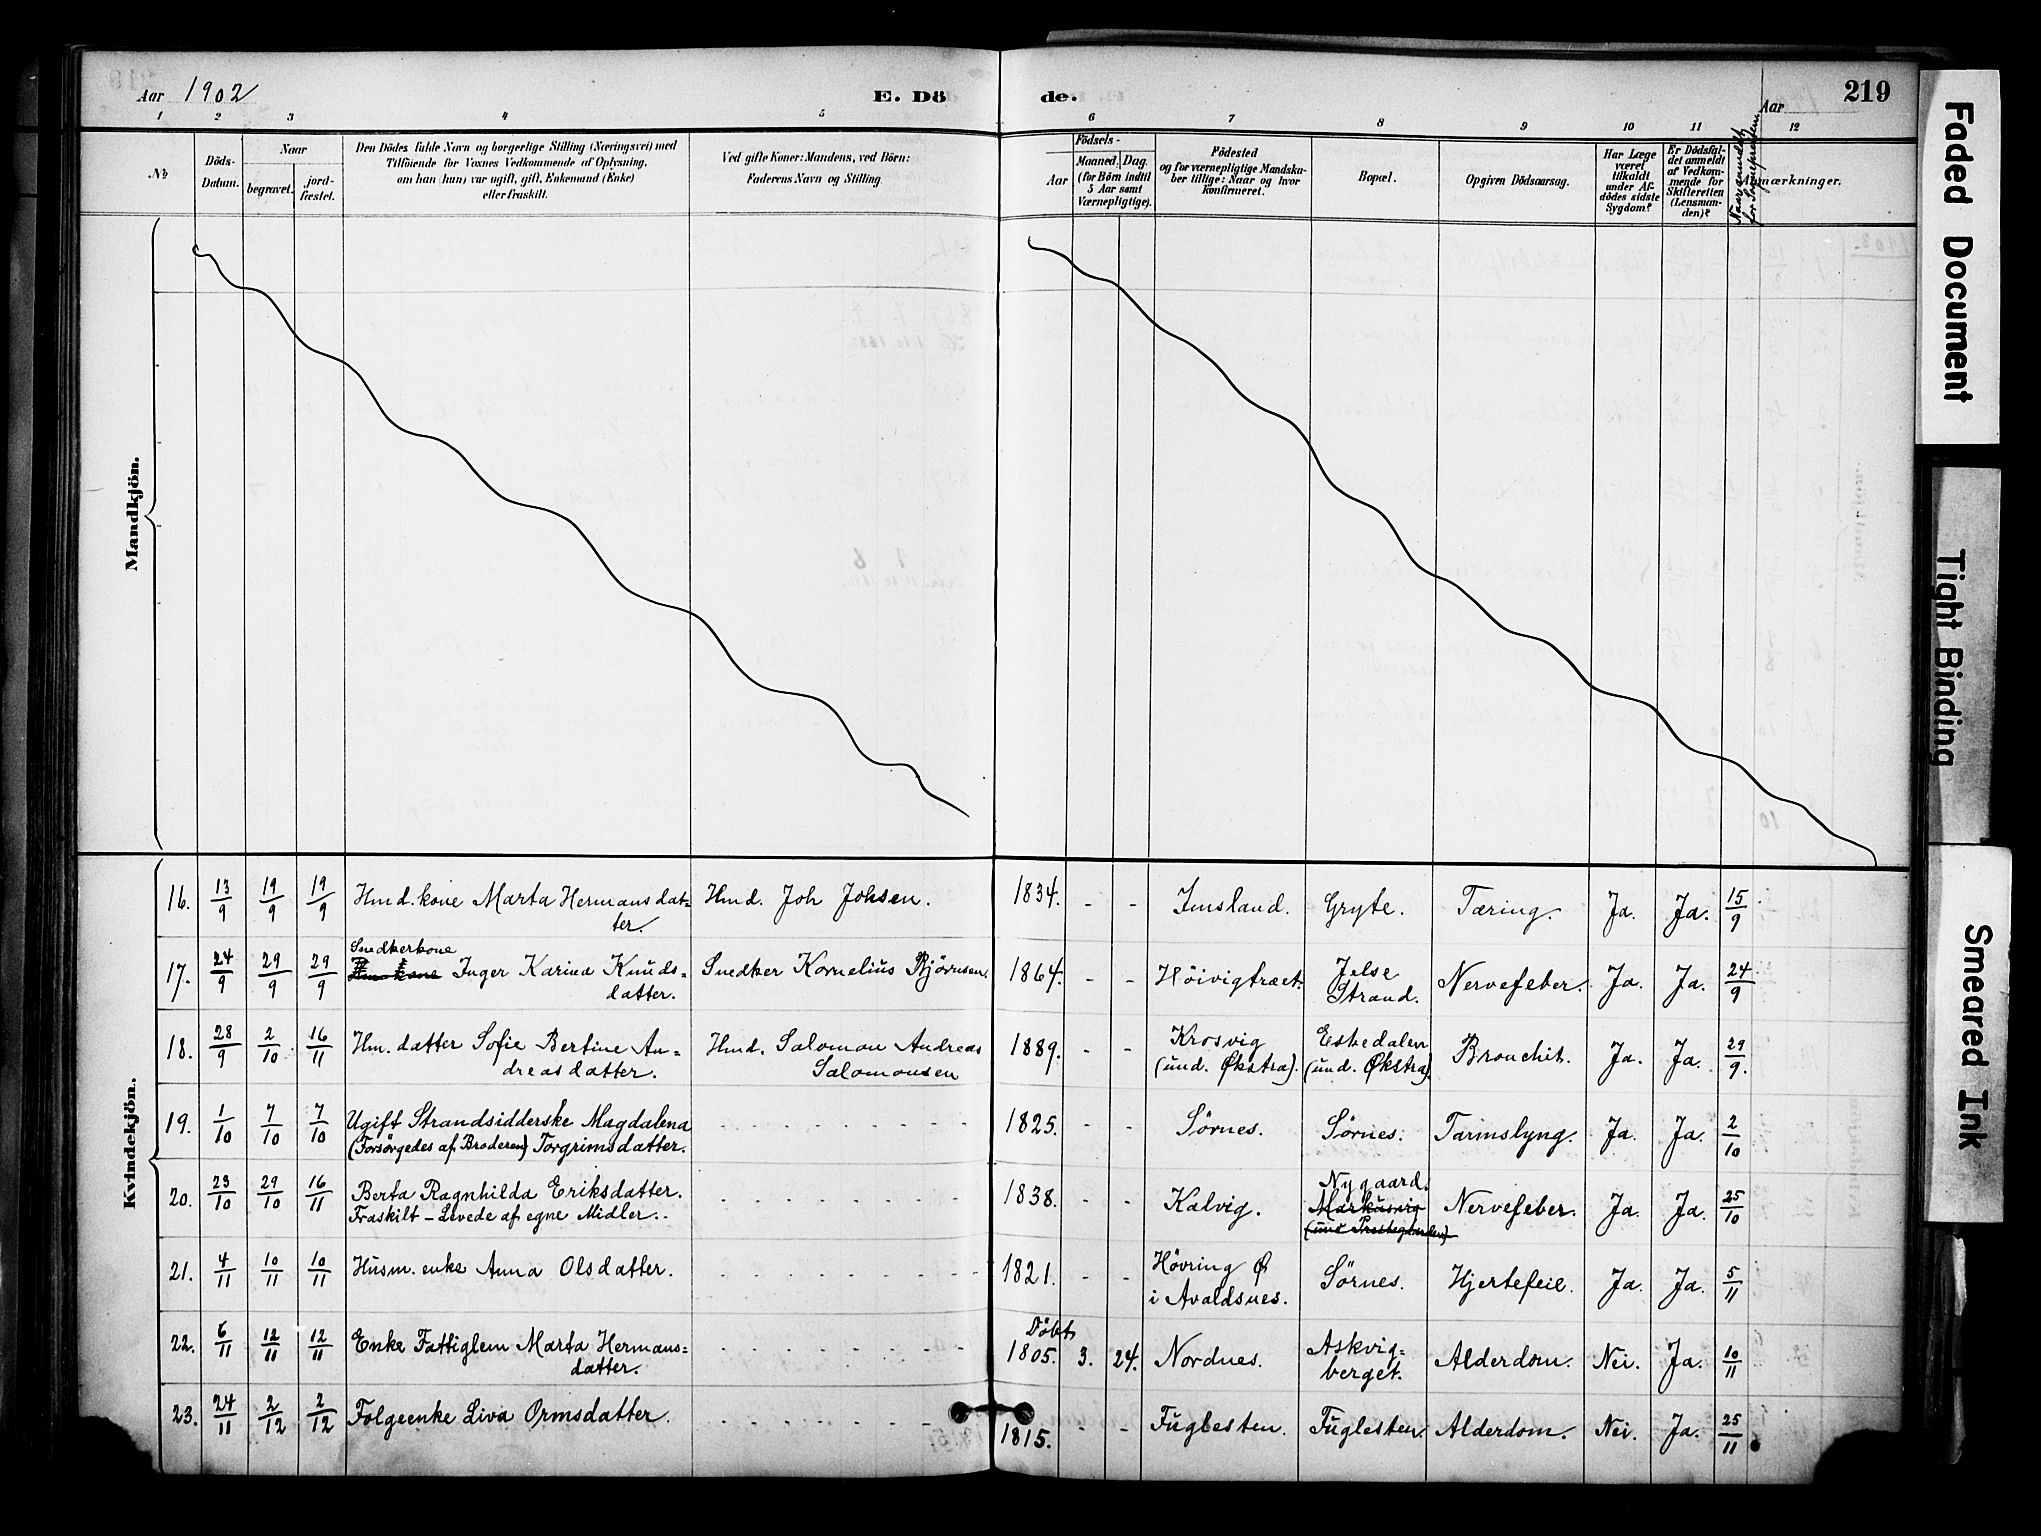 Aar 1902 E. Dö de. Aar 219
1 2 3 4 5 6 7 8 9 10 11 12
№
Döds-Datum.
Naar
begravet.
jord-fæstet.
Den Dödes fulde Navn og borgerlige Stilling (Næringsvei) med
Tilföiende for Voxnes Vedkommende af Oplysning,
om han (hun) var ugift, gift, Enkemand (Enke)
eller fraskilt.
Ved gifte Koner: Mandens, ved Börn:
Faderens Navn og Stilling.
Födsels-
Aar
Maaned. Dag.
(for Börn indtil
5 Aar samt
Værnepligtige).
Födested
og for værnepligtige Mandska-
ber tillige: Naar og hvor
konfirmeret.
Bopæl.
Opgiven Dödsaarsag.
Har Læge
været
tilkaldt
under Af-
dödes sidste
Sygdom?
Er Dödsfal-
det anmeldt
af Vedkom-
mende for
Skifteretten
(Lensman-
den)?
Naar anmeldt
for Sognepræsten.
mærkninger.
Mandkjön.
Kvindekjön.
16. 13/9 19/9 19/9 Hmd. kone Marta Hermansdat=
ter. Hmd. Joh Johsen. 1834. - - Imsland. Gryte. Tæring. Ja. Ja. 15/9
Snedkerkone
17. 24/9 29/9 29/9 Hm kone Inger Karina Knuds=
datter. Snedker Kornelius Bjørnsen. 1864. - - Höivigtræet. Jelse
Strand. Nervefeber. Ja. Ja. 24/9
18. 28/9 2/10 16/11 Hm. datter Sofie Bertine An=
dreasdatter. Hmd. Salomon Andreas
Salomonsen 1889. - - Krosvig
(und. Økstra). Eskedalen
(und. Økstra) Bronchit. Ja. Ja. 29/9.
19. 1/10 7/10 7/10 Ugift Strandsidderske Magdalena
(Forsörgedes af Broderen) Torgrimsdatter. 1825. - - Sörnes. Sörnes. Tarmslyng. Ja. Ja. 2/10
20. 23/10 29/10 16/11 Berta Ragnhilda Eriksdatter.
Fraskilt – Levede af egne Midler. 1838. - - Kalvig. Nygaard.
Markusvig
(und Prestegarden) Nervefeber. Ja. Ja. 25/10
21. 4/11 10/11 10/11 Husm. enke Anna Olsdatter. 1821. - - Hövring Ø
i Avaldsnes. Sörnes. Hjertefeil. Ja. Ja. 5/11
22. 6/11 12/11 12/11 Enke Fattiglem Marta Hermans=
datter. Döbt
1805. 3. 24. Nordnes. Askvig=
berget. Alderdom. Nei. Ja. 10/11
23. 24/11 2/12 2/12 Folgeenke Liva Ormsdatter. 1815. - - Fuglesten. Fuglesten. Alderdom. Nei. Ja. 25/11
Faded Document
Tight Binding
Smeared Ink